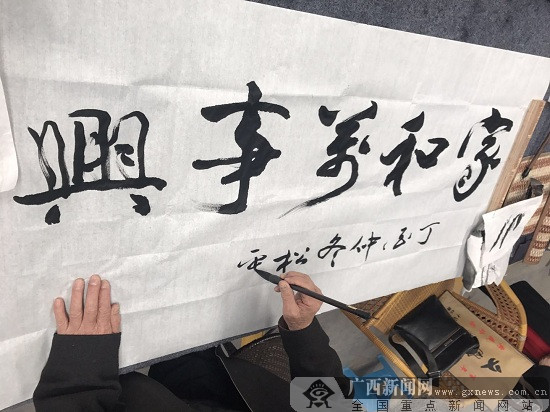 家和萬事興
丁酉仲冬松
广西新闻网 www.gxnews.com.cn
全国重点新闻网站